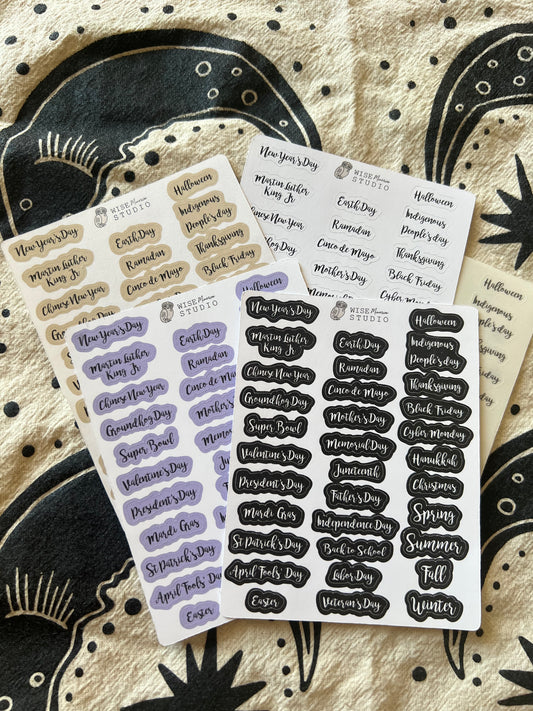 WISE Maven
STUDIO
New Year's Day
Martin Luther
King Jr
Chinese New Year
Halloween
Earth Day
Ramadan
Cinco de Mayo
Indigenous
People's day
Thanksgiving
Black Friday
WISE
STUDIO
New Year's Day
Martin Luther
King Jr
Chinese New Year
Earth Day
Ramadan
Cinco de Mayo
Mother's Day
Halloween
Indigenous
People's day
Thanksgiving
Black Friday
Cyber Monday
Halloween
Indigenous
WISE
STUDIO
New Year's Day
Martin Luther
King Jr
Chinese New Year
Groundhog Day
Super Bowl
Valentine's Day
President's Day
Mardi Gras
St Patrick's Day
April Fools' Day
Easter
Earth Day
Ramadan
Cinco de Mayo
WISE
STUDIO
New Year's Day
Martin Luther
King Jr
Chinese New Year
Groundhog Day
Super Bowl
Valentine's Day
President's Day
Mardi Gras
St Patrick's Day
April Fools' Day
Easter
Earth Day
Ramadan
Cinco de Mayo
Mother's Day
Memorial Day
Juneteenth
Father's Day
Independence Day
Back to School
Labor Day
Veteran's Day
Halloween
Indigenous
People's day
Thanksgiving
Black Friday
Cyber Monday
Hanukkah
Christmas
Spring
Summer
Fall
Winter